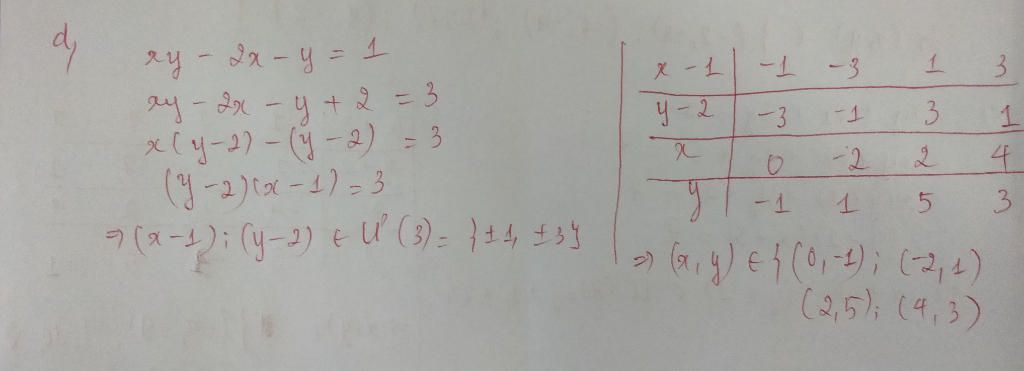 d,
xy - 2x - y = 1
xy - 2x - y + 2 = 3
x(y-2) - (y-2) = 3
(y-2)(x-1) = 3
⇒ (x-1); (y-2) ∈ Ư(3) = {±1, ±3}
x-1 | -1 -3 1 3
y-2 | -3 -1 3 1
x | 0 -2 2 4
y | -1 1 5 3
⇒ (x,y) ∈ {(0,-1); (-2,1)
(2,5); (4,3)